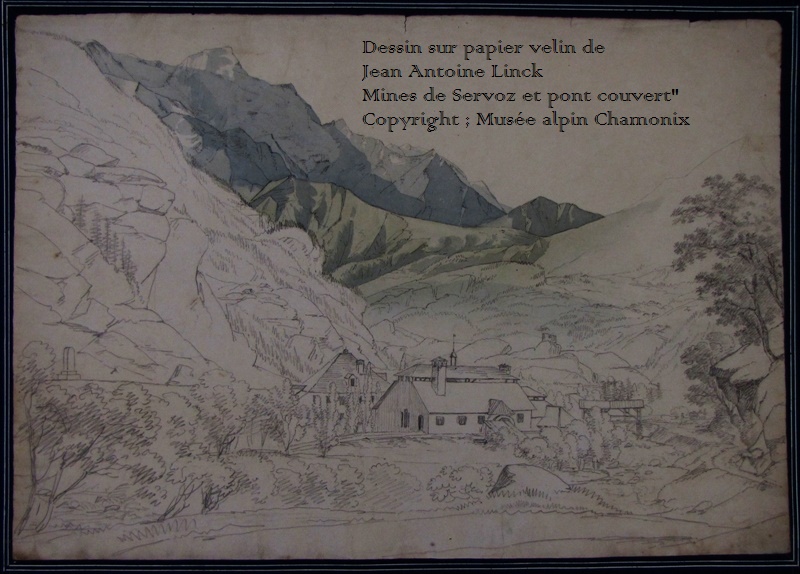 Dessin sur papier velin de
Jean Antoine Linck
Mines de Servoz et pont couvert"
Copyright ; Musée alpin Chamonix